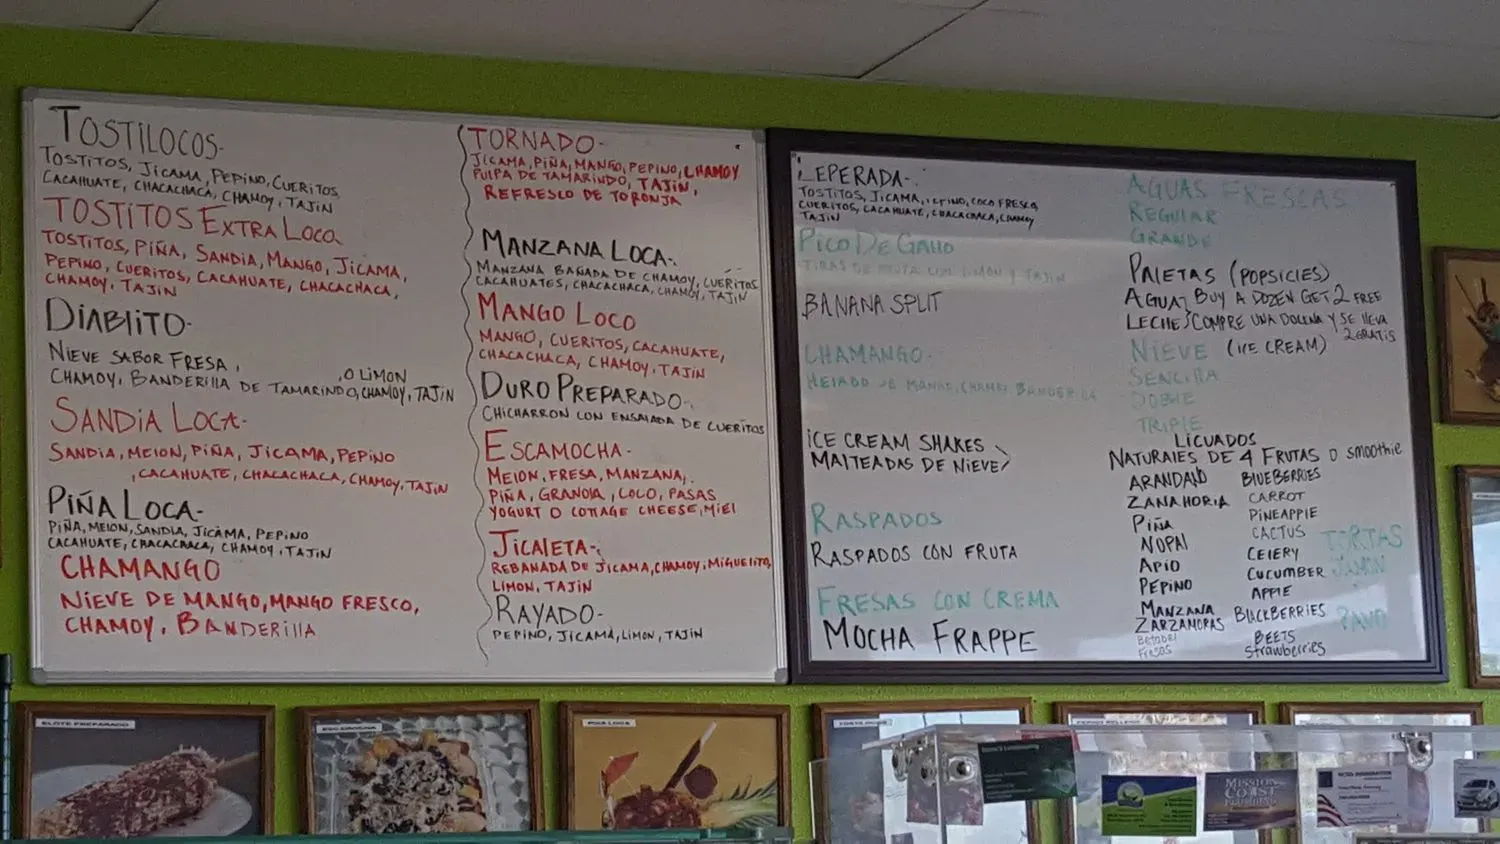 TOSTILOCOS-
TOSTITOS, JICAMA, PEPINO, CUERITOS
CACAHUATE, CHACACHACA, CHAMOY, TAJIN
TOSTITOS EXTRA LOCO
TOSTITOS, PIÑA, SANDIA, MANGO, JICAMA,
PEPINO, CUERITOS, CACAHUATE, CHACACHACA,
CHAMOY, TAJIN
DIABLITO-
NIEVE SABOR FRESA, , O LIMON
CHAMOY, BANDERILLA DE TAMARINDO, CHAMOY, TAJIN
SANDIA LOCA-
SANDIA, MELON, PIÑA, JICAMA, PEPINO
, CACAHUATE, CHACACHACA, CHAMOY, TAJIN
PIÑA LOCA-
PIÑA, MELON, SANDIA, JICAMA, PEPINO
CACAHUATE, CHACACHACA, CHAMOY, TAJIN
CHAMANGO
NIEVE DE MANGO, MANGO FRESCO,
CHAMOY, BANDERILLA
TORNADO-
JICAMA, PIÑA, MANGO, PEPINO, CHAMOY
PULPA DE TAMARINDO, TAJIN,
REFRESCO DE TORONJA
MANZANA LOCA-
MANZANA BAÑADA DE CHAMOY, CUERITOS
CACAHUATES, CHACACHACA, CHAMOY, TAJIN
MANGO LOCO
MANGO, CUERITOS, CACAHUATE,
CHACACHACA, CHAMOY, TAJIN
DURO PREPARADO-
CHICHARRON CON ENSALADA DE CUERITOS
ESCAMOCHA-
MELON, FRESA, MANZANA,
PIÑA, GRANOLA, COCO, PASAS
YOGURT O COTTAGE CHEESE, MIEL
JICALETA-
REBANADA DE JICAMA, CHAMOY, MIGUELITO,
LIMON, TAJIN
RAYADO-
PEPINO, JICAMA, LIMON, TAJIN
LEPERADA-
TOSTITOS, JICAMA, COCO FRESCO
CUERITOS, CACAHUATE, CHACACHACA, CHAMOY
TAJIN
PICO DE GALLO
TIRAS DE FRUTA CON LIMON Y TAJIN
BANANA SPLIT
CHAMANGO-
HELADO DE MANGO, CHAMOY, BANDERILLA
ICE CREAM SHAKES
MALTEADAS DE NIEVE
RASPADOS
RASPADOS CON FRUTA
FRESAS CON CREMA
MOCHA FRAPPE
AGUAS FRESCAS
REGULAR
GRANDE
PALETAS (POPSICLES)
AGUA BUY A DOZEN GET 2 FREE
LECHE COMPRE UNA DOCENA Y SE LLEVA
2 GRATIS
NIEVE (ICE CREAM)
SENCILLA
DOBLE
TRIPLE
LICUADOS
NATURALES DE 4 FRUTAS O smoothie
ARANDANO BLUEBERRIES
ZANAHORIA CARROT
PIÑA PINEAPPLE
NOPAL CACTUS
APIO CELERY
PEPINO CUCUMBER
MANZANA APPLE
ZARZAMORAS BLACKBERRIES
BETABEL BEETS
FRESAS Strawberries
TORTAS
JAMON
PAVO
ELOTE PREPARADO
PIÑA LOCA
MISSION
COAST